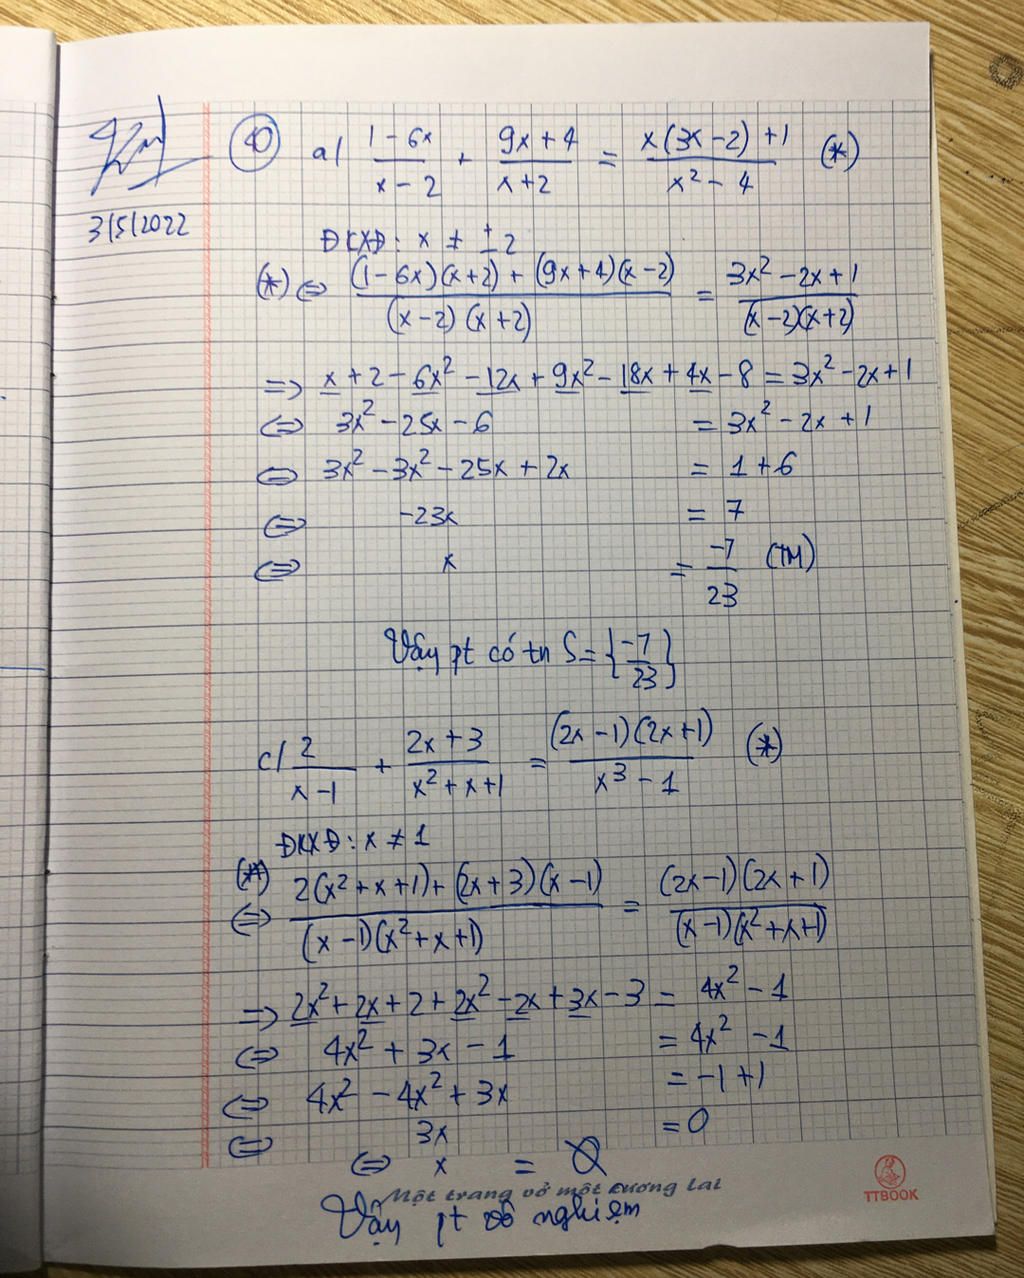 40 a/ (1 - 6x)/(x - 2) + (9x + 4)/(x + 2) = (x(3x - 2) + 1)/(x² - 4) (*)
3/5/2022
ĐKXĐ: x ≠ ± 2
(*) ⇔ ((1 - 6x)(x + 2) + (9x + 4)(x - 2))/((x - 2)(x + 2)) = (3x² - 2x + 1)/((x - 2)(x + 2))
=> x + 2 - 6x² - 12x + 9x² - 18x + 4x - 8 = 3x² - 2x + 1
⇔ 3x² - 25x - 6 = 3x² - 2x + 1
⇔ 3x² - 3x² - 25x + 2x = 1 + 6
⇔ -23x = 7
⇔ x = -7/23 (TM)
Vậy pt có tn S = {-7/23}
c/ 2/(x - 1) + (2x + 3)/(x² + x + 1) = ((2x - 1)(2x + 1))/(x³ - 1) (*)
ĐKXĐ: x ≠ 1
(*)
⇔ (2(x² + x + 1) + (2x + 3)(x - 1))/((x - 1)(x² + x + 1)) = ((2x - 1)(2x + 1))/((x - 1)(x² + x + 1))
=> 2x² + 2x + 2 + 2x² - 2x + 3x - 3 = 4x² - 1
⇔ 4x² + 3x - 1 = 4x² - 1
⇔ 4x² - 4x² + 3x = -1 + 1
⇔ 3x = 0
⇔ x = Ø
Một trang vở một tương lai
TTBOOK
Vậy pt vô nghiệm